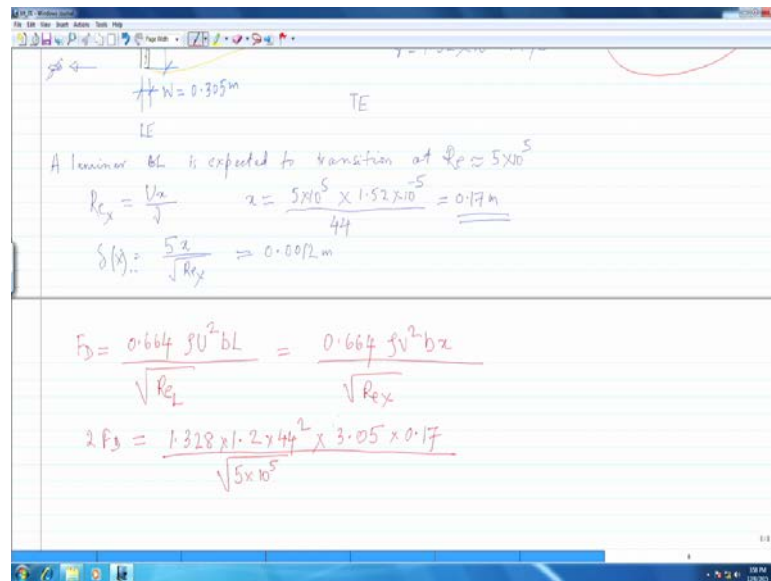 File Edit View Insert Actions Tools Help
Page Width
W = 0.305m
TE
LE
A laminar BL is expected to transition at Re ≈ 5×10^5
Re_x = Ux/ν x = 5×10^5 × 1.52×10^-5 / 44 = 0.17 m
δ(x) = 5x/√Re_x = 0.0012 m
F_D = 0.664 ρU^2 bL / √Re_L = 0.664 ρU^2 bx / √Re_x
2 F_D = 1.328×1.2×44^2 × 3.05 × 0.17 / √5×10^5